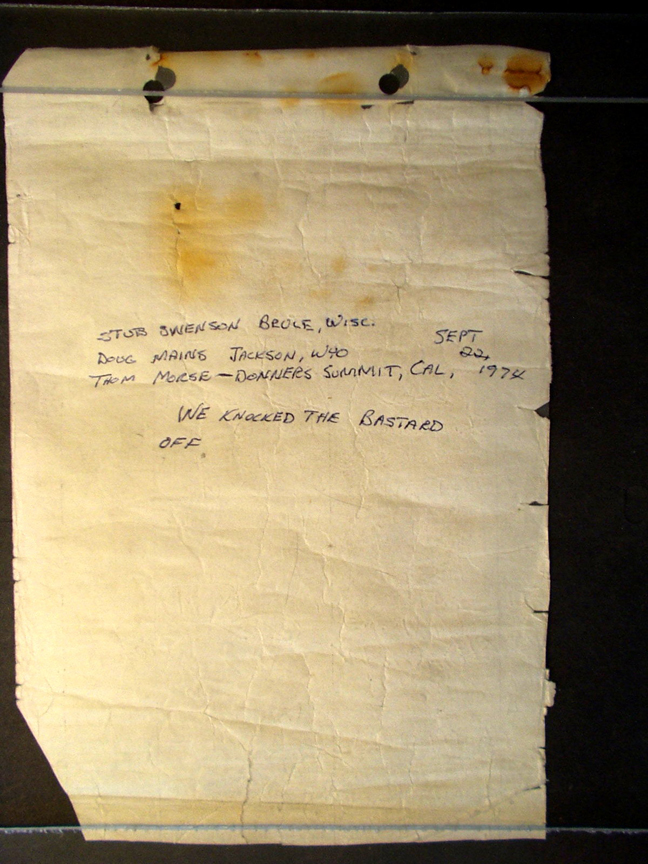 STUB SWENSON BRULE, WISC.
DOUG MAINS JACKSON, WYO
THOM MORSE — DONNERS SUMMIT, CAL,
SEPT
22,
1974
WE KNOCKED THE BASTARD
OFF